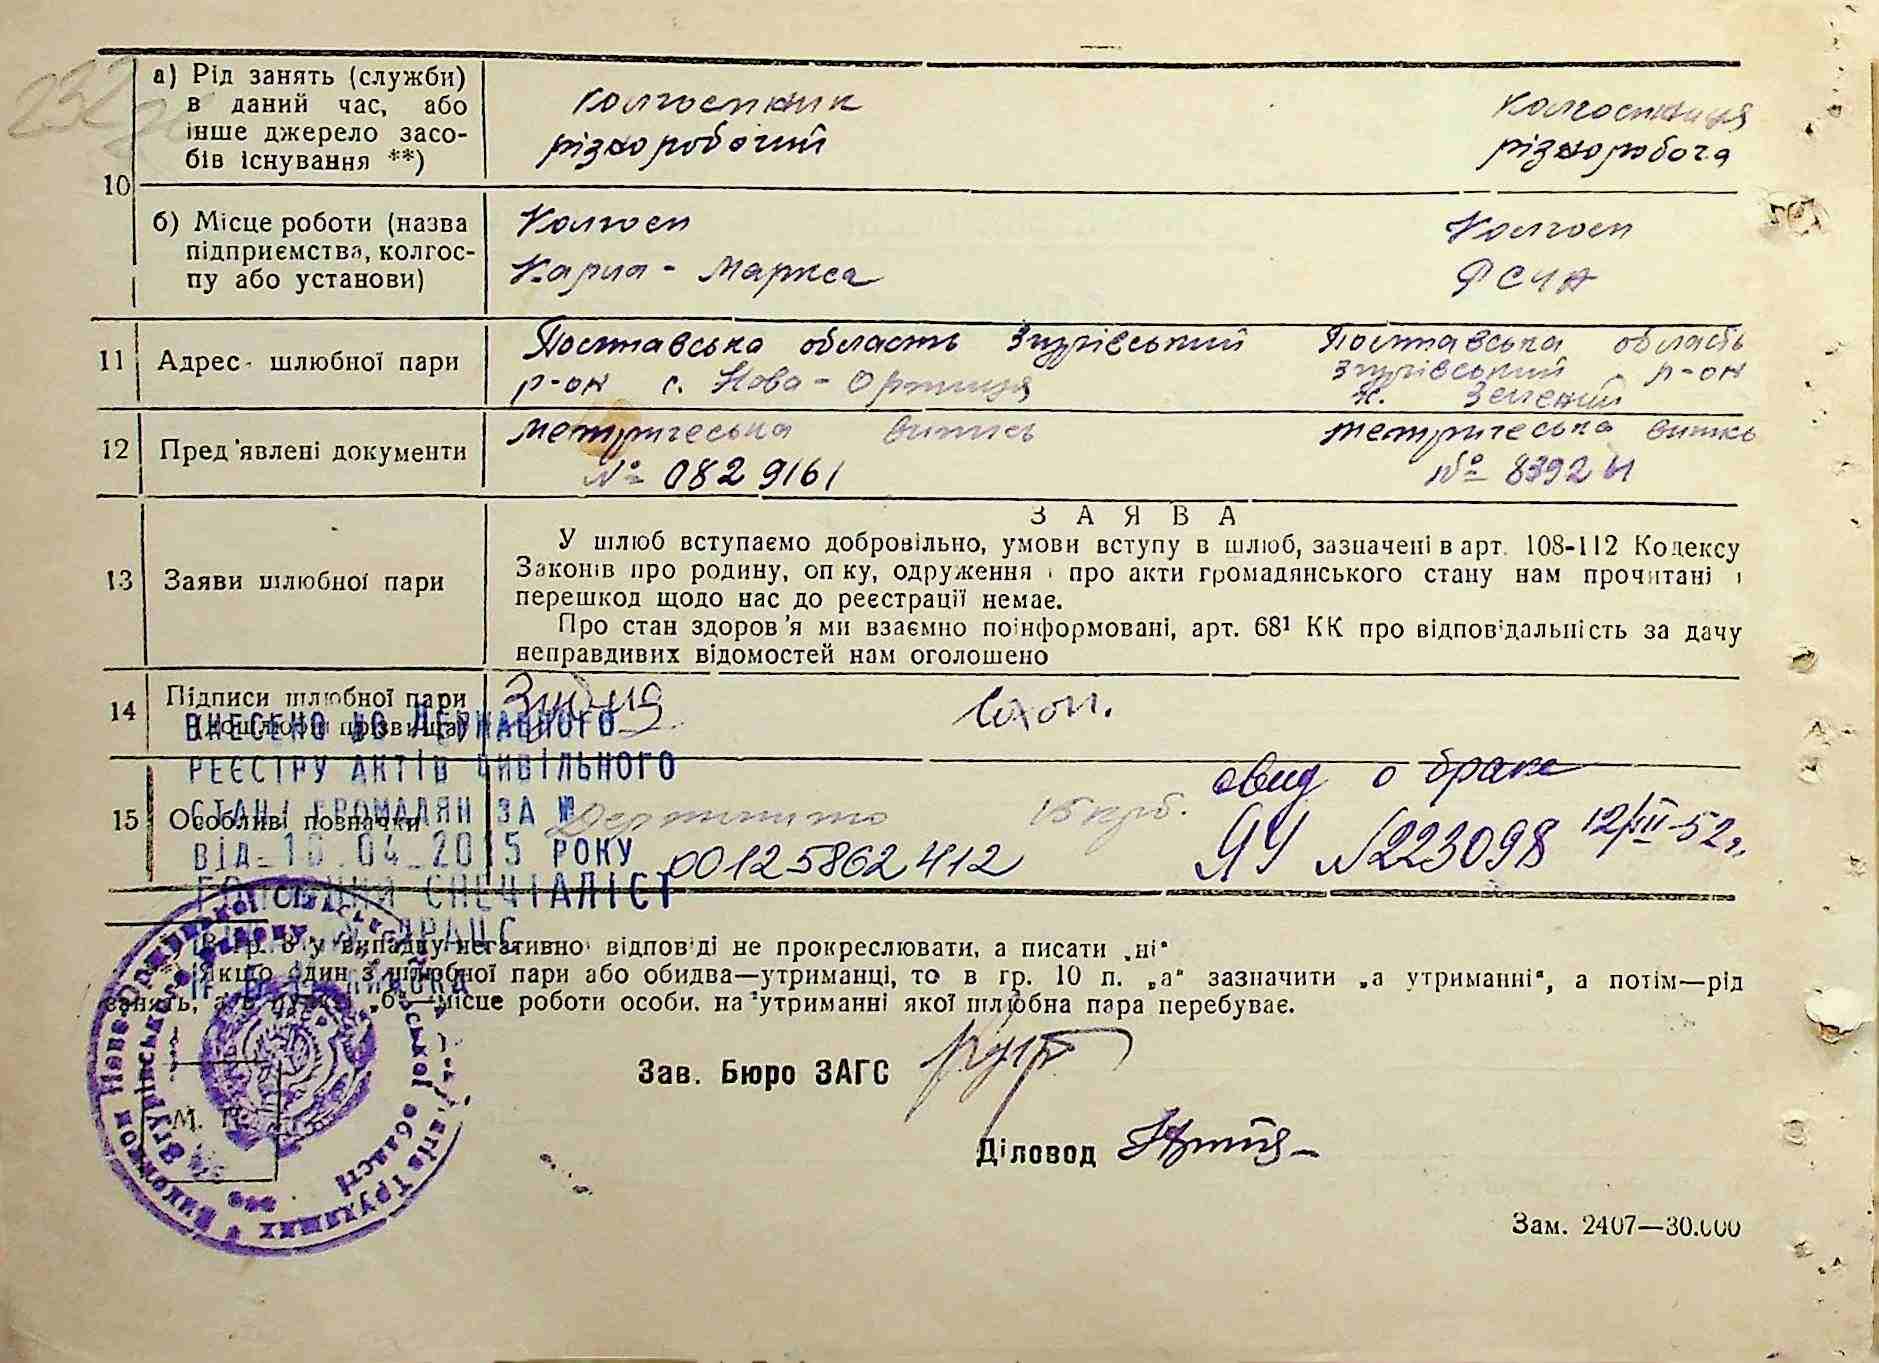 10
а) Рід занять (служби)
в даний час, або
інше джерело засо-
бів існування **)
колгоспник
різноробочий
колгоспниця
різноробоча
б) Місце роботи (назва
підприємства, колгос-
пу або установи)
Колгосп
Карла - Маркса
Колгосп
11
Адрес шлюбної пари
Полтавська область Згурівський
р-он с. Нова - Оржиця
Полтавська область
Згурівський р-он
Зелений
12
Пред'явлені документи
метрическа випись
№ 0829161
метрическа випись
№ 8392
13
Заяви шлюбної пари
ЗАЯВА
У шлюб вступаємо добровільно, умови вступу в шлюб, зазначені в арт. 108-112 Кодексу
Законів про родину, опіку, одруження і про акти громадянського стану нам прочитані і
перешкод щодо нас до реєстрації немає.
Про стан здоров'я ми взаємно поінформовані, арт. 68¹ КК про відповідальність за дачу
неправдивих відомостей нам оголошено
14
Підписи шлюбної пари
(дошлюбні прізвища)
15
Особливі позначки
15 крб.
свид о браке
ЯЧ №223098 12/III-52г.
ВНЕСЕНО ДО ДЕРЖАВНОГО
РЕЄСТРУ АКТІВ ЦИВІЛЬНОГО
СТАНУ ГРОМАДЯН ЗА №
ВІД 10.04.2015 РОКУ 00125862412
ГОЛОВНИЙ СПЕЦІАЛІСТ
В гр. 8 у випадку негативної відповіді не прокреслювати, а писати „ні“
Якщо один з шлюбної пари або обидва—утриманці, то в гр. 10 п. „а“ зазначити „а утриманні“, а потім—рід
занять, а в пункті „б“—місце роботи особи, на утриманні якої шлюбна пара перебуває.
Зав. Бюро ЗАГС
Діловод
М. П.
Зам. 2407—30.000